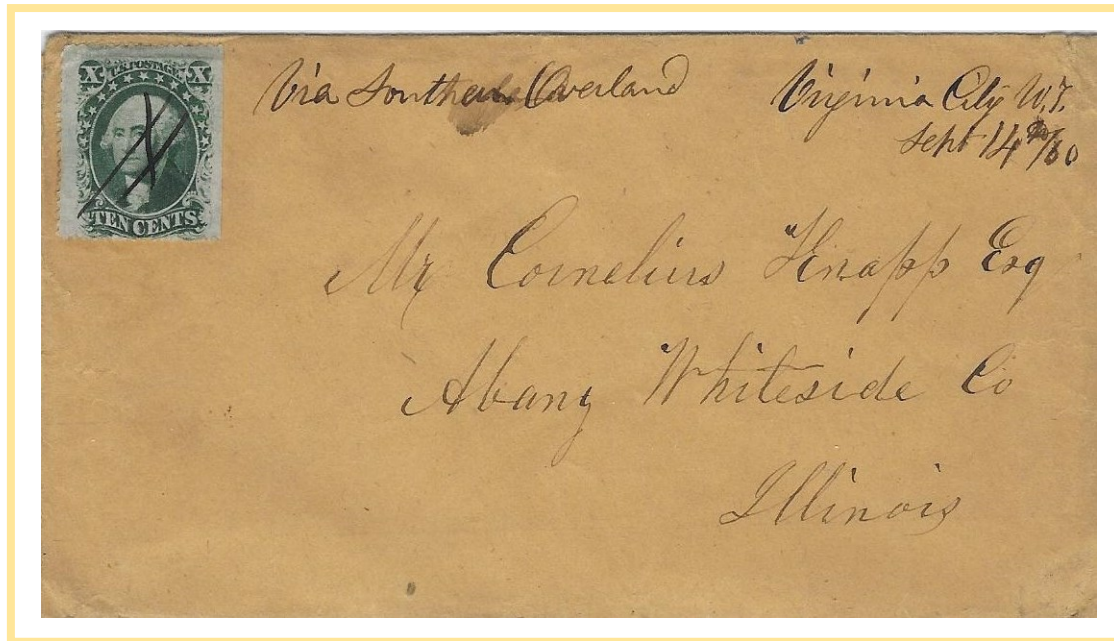 X U.S. POSTAGE X
TEN CENTS
Via Southern Overland
Virginia City U.T.
Sept 14th/60
Mr Cornelius Knapp Esq
Abany Whiteside Co
Illinois